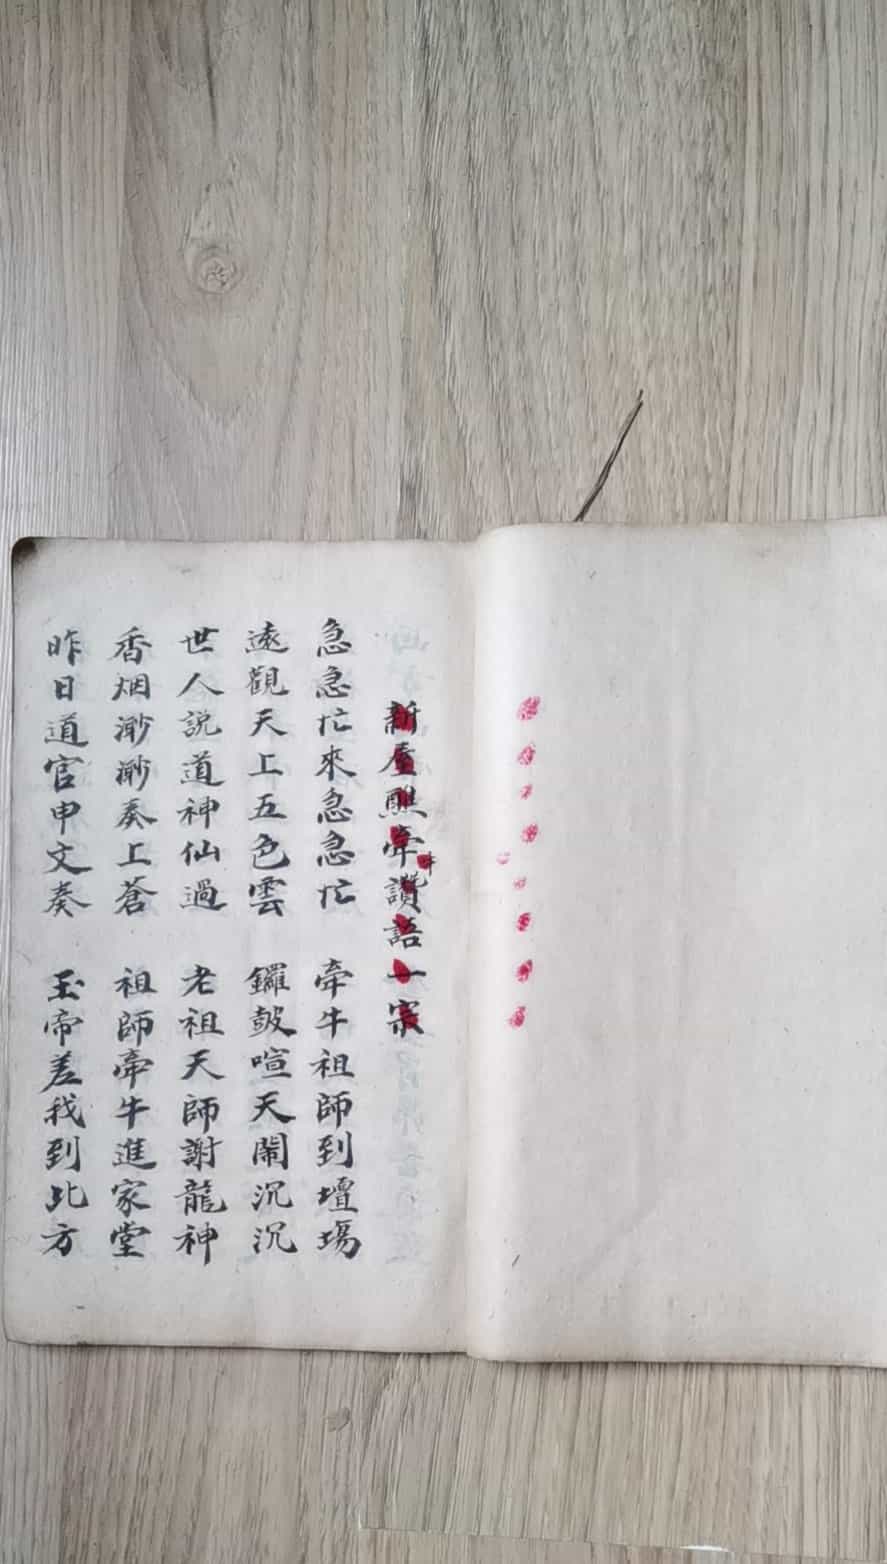 新屋醮牽牛讚語一宗
急急忙來急急忙 牽牛祖師到壇場
遠觀天上五色雲 鑼鼓喧天鬧沉沉
世人説道神仙過 老祖天師謝龍神
香烟渺渺奏上蒼 祖師牽牛進家堂
昨日道官申文奏 玉帝差我到此方